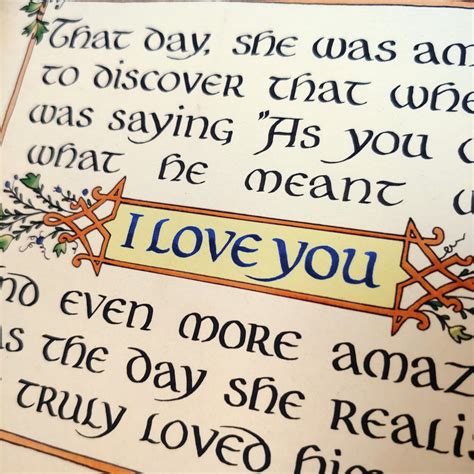 That day, she was
to discover that
was saying "As you
what he meant
I LOVE YOU
EVEN MORE
the day she
truly loved